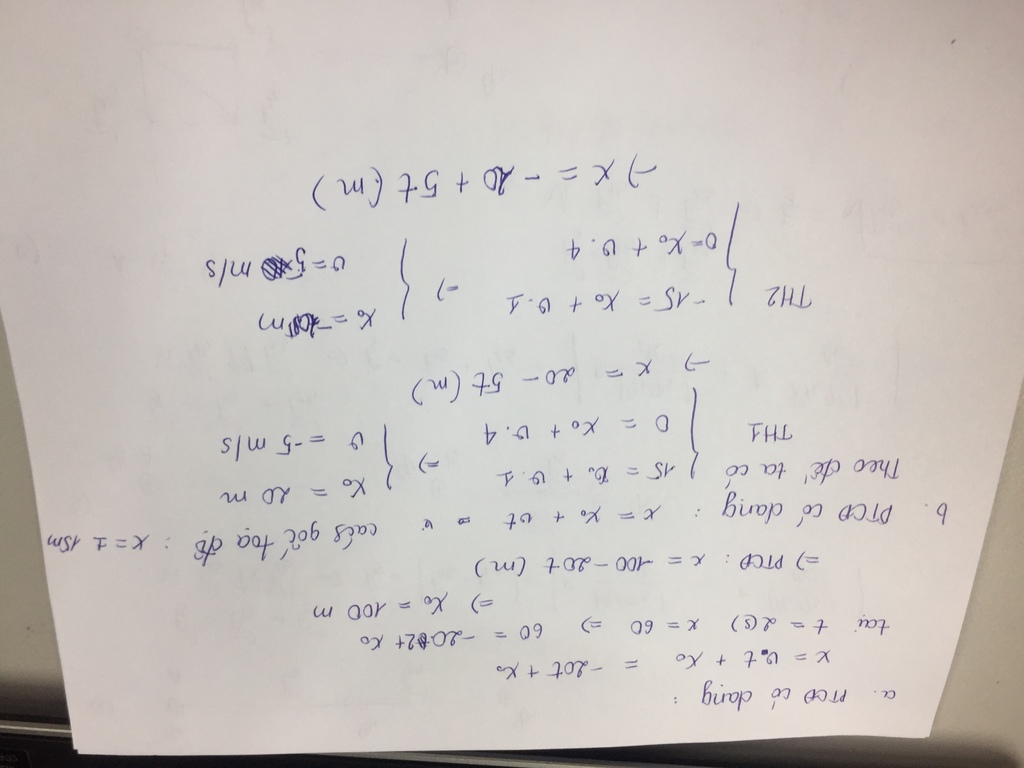 a. PTCĐ có dạng :
x = v.t + x₀ = -20t + x₀
tại t = 2(s) x = 60 => 60 = -20.2 + x₀
=> x₀ = 100 m
=> PTCĐ : x = 100 - 20t (m)
b. PTCĐ có dạng : x = x₀ + vt cách gốc tọa độ : x = ± 15m
Theo đề, ta có
TH1 { 15 = x₀ + v.1 => { x₀ = 20 m
0 = x₀ + v.4 v = -5 m/s
-> x = 20 - 5t (m)
TH2 { -15 = x₀ + v.1 => { x₀ = -20 m
0 = x₀ + v.4 v = 5 m/s
-> x = -20 + 5t (m)